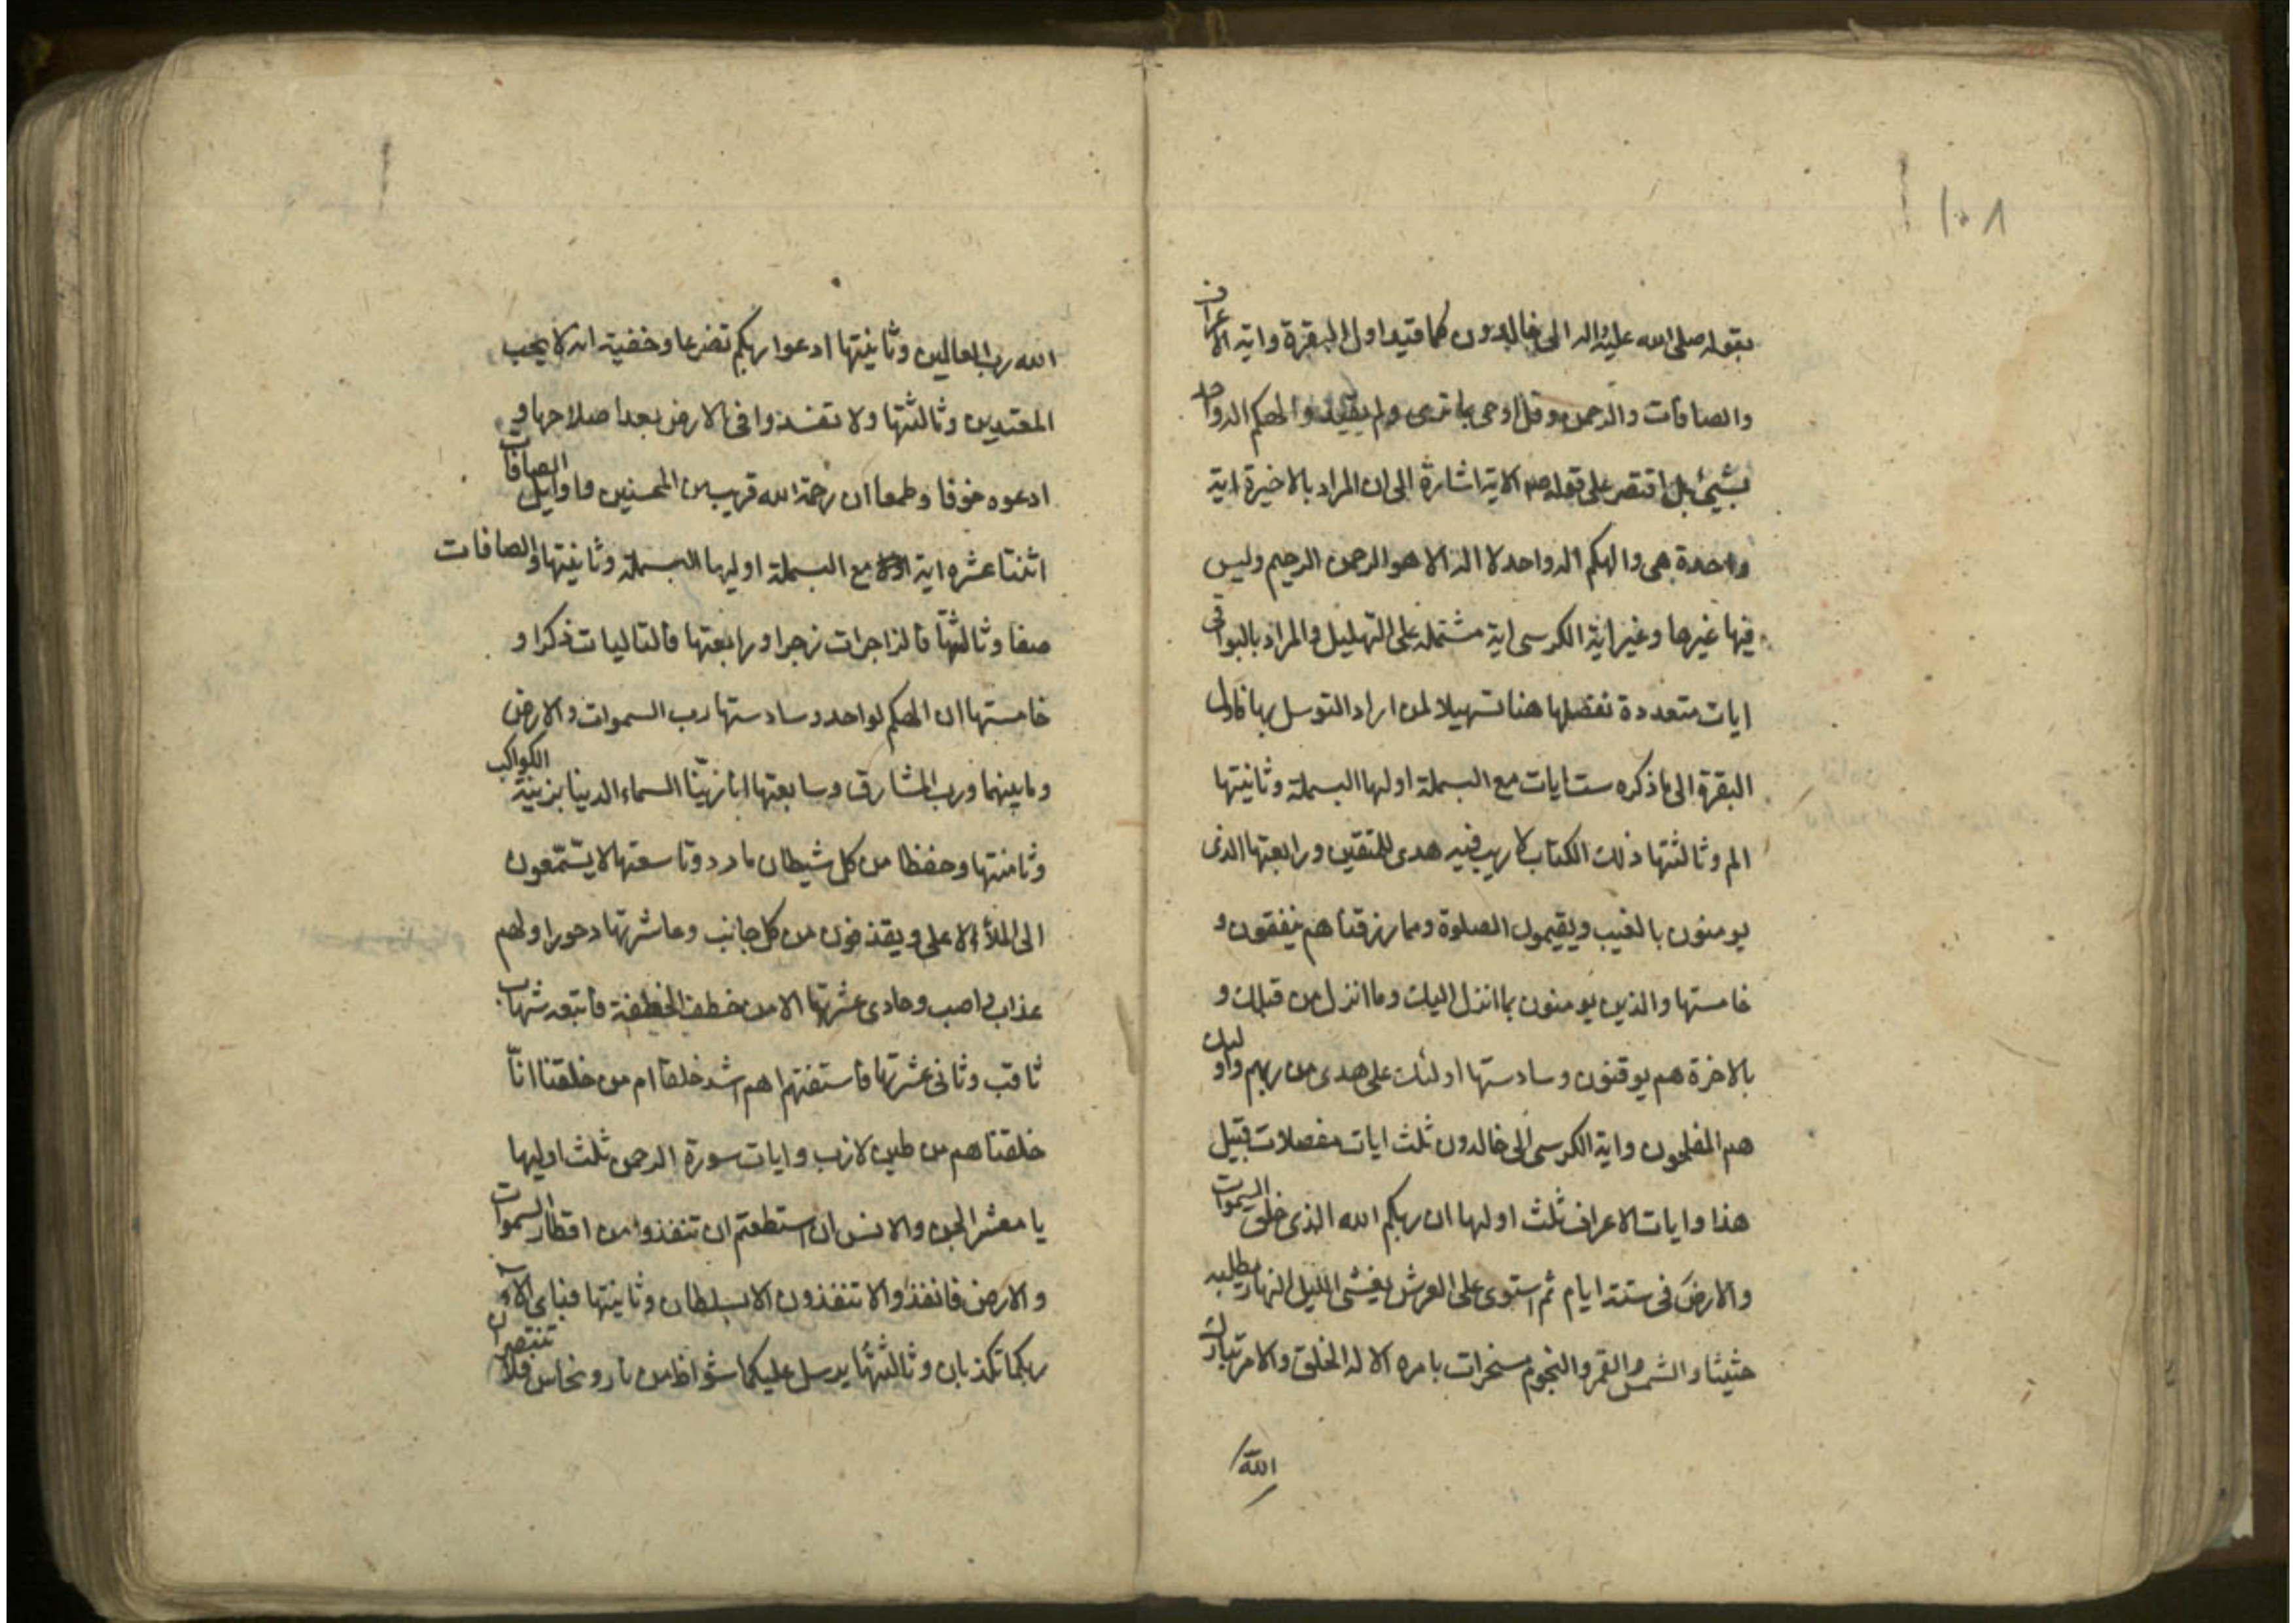 ١٠٨
بقوله صلى الله عليه واله الى خالدون كما قيد اول البقرة واية الاعراف
والصافات والرحمن وقل اوحى بما ترى ولم يقيد والهكم اله واحد
بشيئ بل اقتصر على قوله الاية اشارة الى ان المراد بالاخيرة اية
واحدة هى والهكم اله واحد لا اله الا هو الرحمن الرحيم وليس
فيها غيرها وغير اية الكرسى اية مشتملة على التهليل والمراد بالبواقى
ايات متعددة نفصلها هنا تسهيلا لمن اراد التوسل بها فاول
البقرة الى ما ذكره ست ايات مع البسملة اولها البسملة وثانيتها
الم وثالثتها ذلك الكتاب لا ريب فيه هدى للمتقين ورابعتها الذى
يومنون بالغيب ويقيمون الصلوة ومما رزقناهم ينفقون و
خامستها والذين يومنون بما انزل اليك وما انزل من قبلك و
بالاخرة هم يوقنون وسادستها اولئك على هدى من ربهم واولئك
هم المفلحون واية الكرسى الى خالدون ثلث ايات مفصلات قبيل
هذا وايات الاعراف ثلث اولها ان ربكم الله الذى خلق السموات
والارض فى ستة ايام ثم استوى على العرش يغشى الليل النهار يطلبه
حثيثا والشمس والقمر والنجوم مسخرات بامره الا له الخلق والامر تبارك
الله
الله رب العالمين وثانيتها ادعوا ربكم تضرعا وخفية انه لا يحب
المعتدين وثالثتها ولا تفسدوا فى الارض بعد اصلاحها و
ادعوه خوفا وطمعا ان رحمة الله قريب من المحسنين واوايل الصافات
اثنتا عشره اية مع البسملة اوليها البسملة وثانيتها والصافات
صفا وثالثتها فالزاجرات زجرا ورابعتها فالتاليات ذكرا و
خامستها ان الهكم لواحد وسادستها رب السموات والارض
وما بينهما ورب المشارق وسابعتها انا زينا السماء الدنيا بزينة الكواكب
وثامنتها وحفظا من كل شيطان مارد وتاسعتها لا يسّمّعون
الى الملأ الاعلى ويقذفون من كل جانب وعاشرتها دحورا ولهم
عذاب واصب وحادى عشرتها الا من خطف الخطفة فاتبعه شهاب
ثاقب وثانى عشرتها فاستفتهم اهم اشد خلقا ام من خلقنا انّا
خلقناهم من طين لازب وايات سورة الرحمن ثلث اوليها
يا معشر الجن والانس ان استطعتم ان تنفذوا من اقطار السموات
والارض فانفذوا لا تنفذون الا بسلطان وثانيتها فباى الآء
ربكما تكذبان وثالثتها يرسل عليكما شواظ من نار ونحاس فلا تنتصران